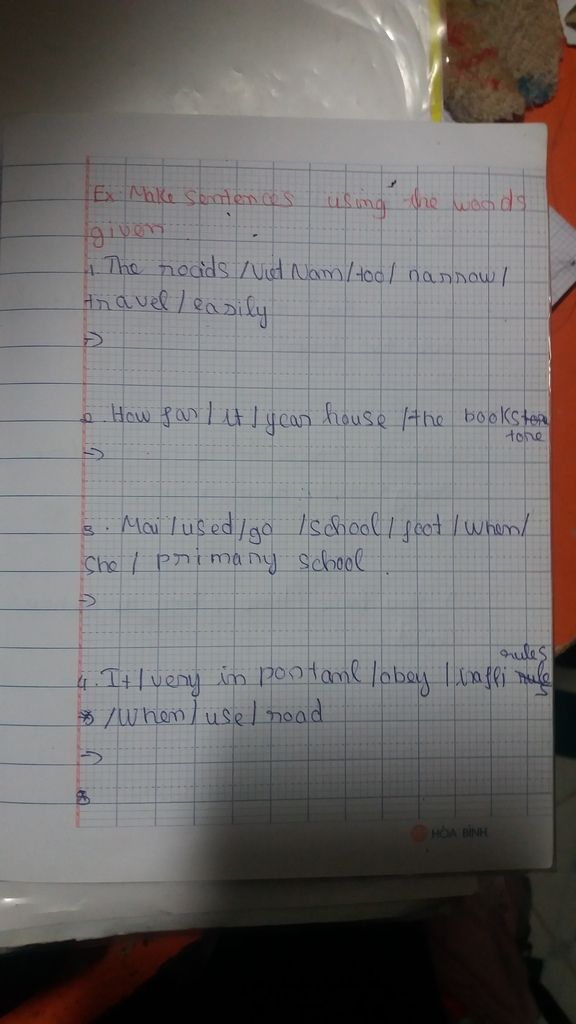 Ex Make sentences using the words
given
1. The roads /Viet Nam/too/ narrow/
travel / easily
->
2. How far / it / your house /the bookstore
tore
->
3. Mai /used/go /school / foot /when/
she / primary school
->
rules
4. It / very importanl /obey / traffi
/when/ use / road
->
HÒA BÌNH